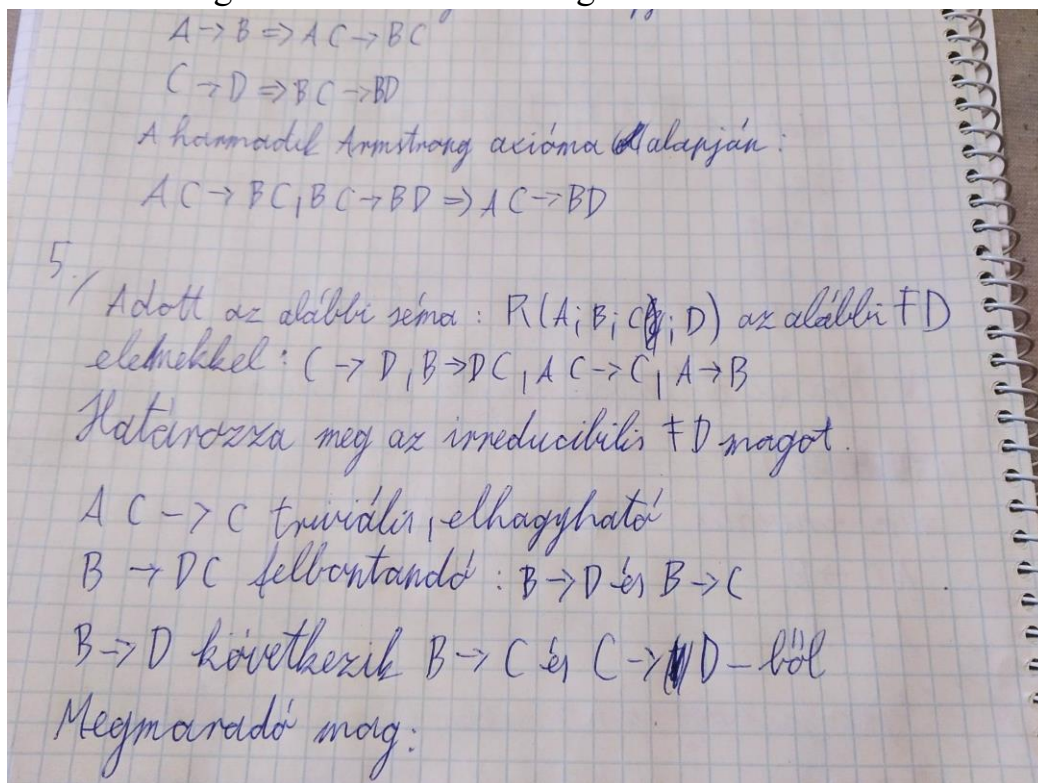 A → B ⇒ AC → BC
C → D ⇒ BC → BD
A harmadik Armstrong axióma alapján:
AC → BC, BC → BD ⇒ AC → BD
5./
Adott az alábbi séma: R(A; B; C; D) az alábbi FD
elemekkel: C → D, B → DC, AC → C, A → B
Határozza meg az irreducibilis FD magot.
AC -> C triviális, elhagyható
B → DC felbontandó: B → D és B → C
B → D következik B → C és C → D-ből
Megmaradó mag: